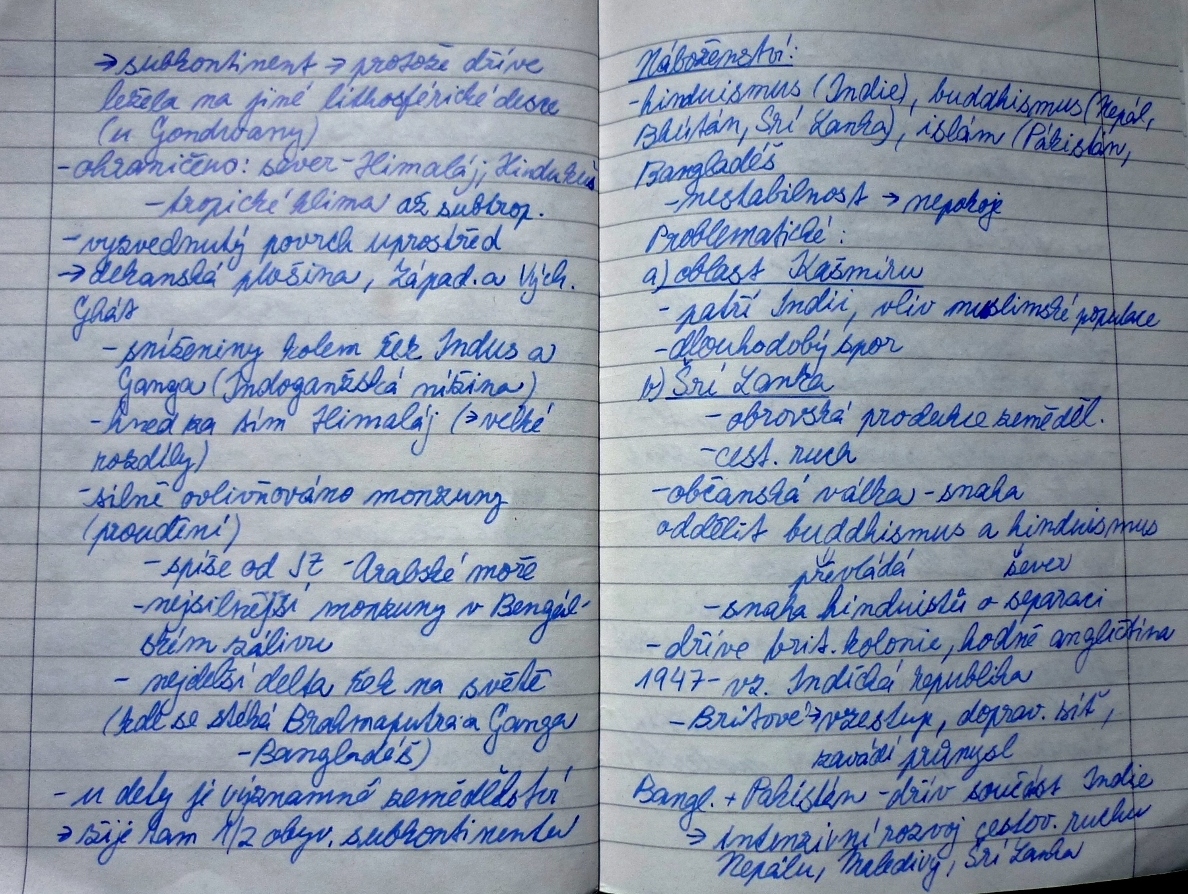 → subkontinent → protože dříve
ležela na jiné lithosférické desce
(u Gondwany)
- ohraničeno: sever - Himaláj, Hindukúš
- tropické klima až subtrop.
- vyzvednutý povrch uprostřed
→ dekanská plošina, Západ. a Vých.
Ghát
- sníženiny kolem řek Indus a
Ganga (Indoganžská nížina)
- hned za tím Himaláj (→ velké
rozdíly)
- silně ovlivňováno monzuny
(proudění)
- spíše od JZ - Arabské moře
- nejsilnější monzuny v Bengál-
ském zálivu
- nejdelší delta řek na světě
(kde se stéká Brahmaputra a Ganga
- Bangladéš)
- u delty je významné zemědělství
→ žije tam 1/2 obyv. subkontinentu
Náboženství:
- hinduismus (Indie), buddhismus (Nepál,
Bhútán, Srí Lanka), islám (Pákistán,
Bangladéš
- nestabilnost → nepokoje
Problematické:
a) oblast Kašmíru
- patří Indii, vliv muslimské populace
- dlouhodobý spor
b) Šrí Lanka
- obrovská produkce zeměděl.
- cest. ruch
- občanská válka - snaha
oddělit buddhismus a hinduismus
převládá sever
- snaha hinduistů o separaci
- dříve brit. kolonie, hodně angličtina
1947 - vz. Indická republika
- Britové → vzestup, doprav. síť,
zavádí průmysl
Bangl. + Pákistán - dřív součást Indie
→ intenzivní rozvoj cestov. ruchu
Nepálu, Maledivy, Srí Lanka